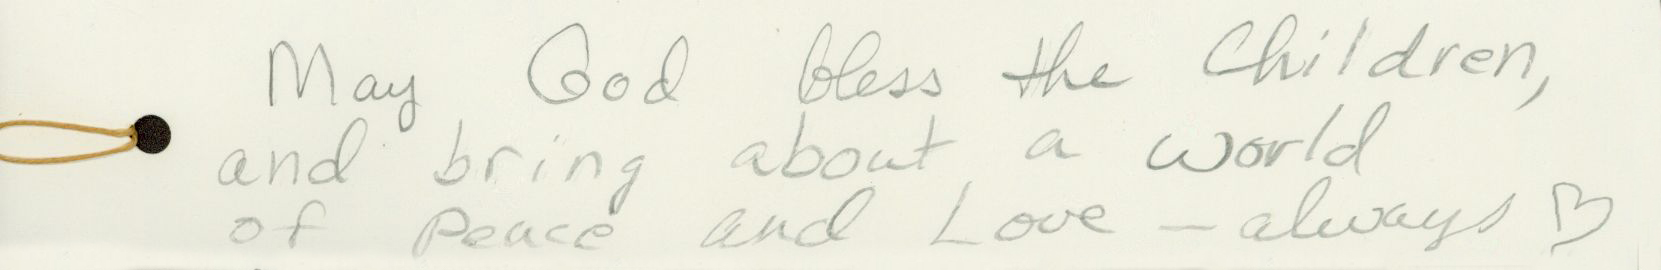 May God bless the Children,
and bring about a world
of peace and Love — always ♡